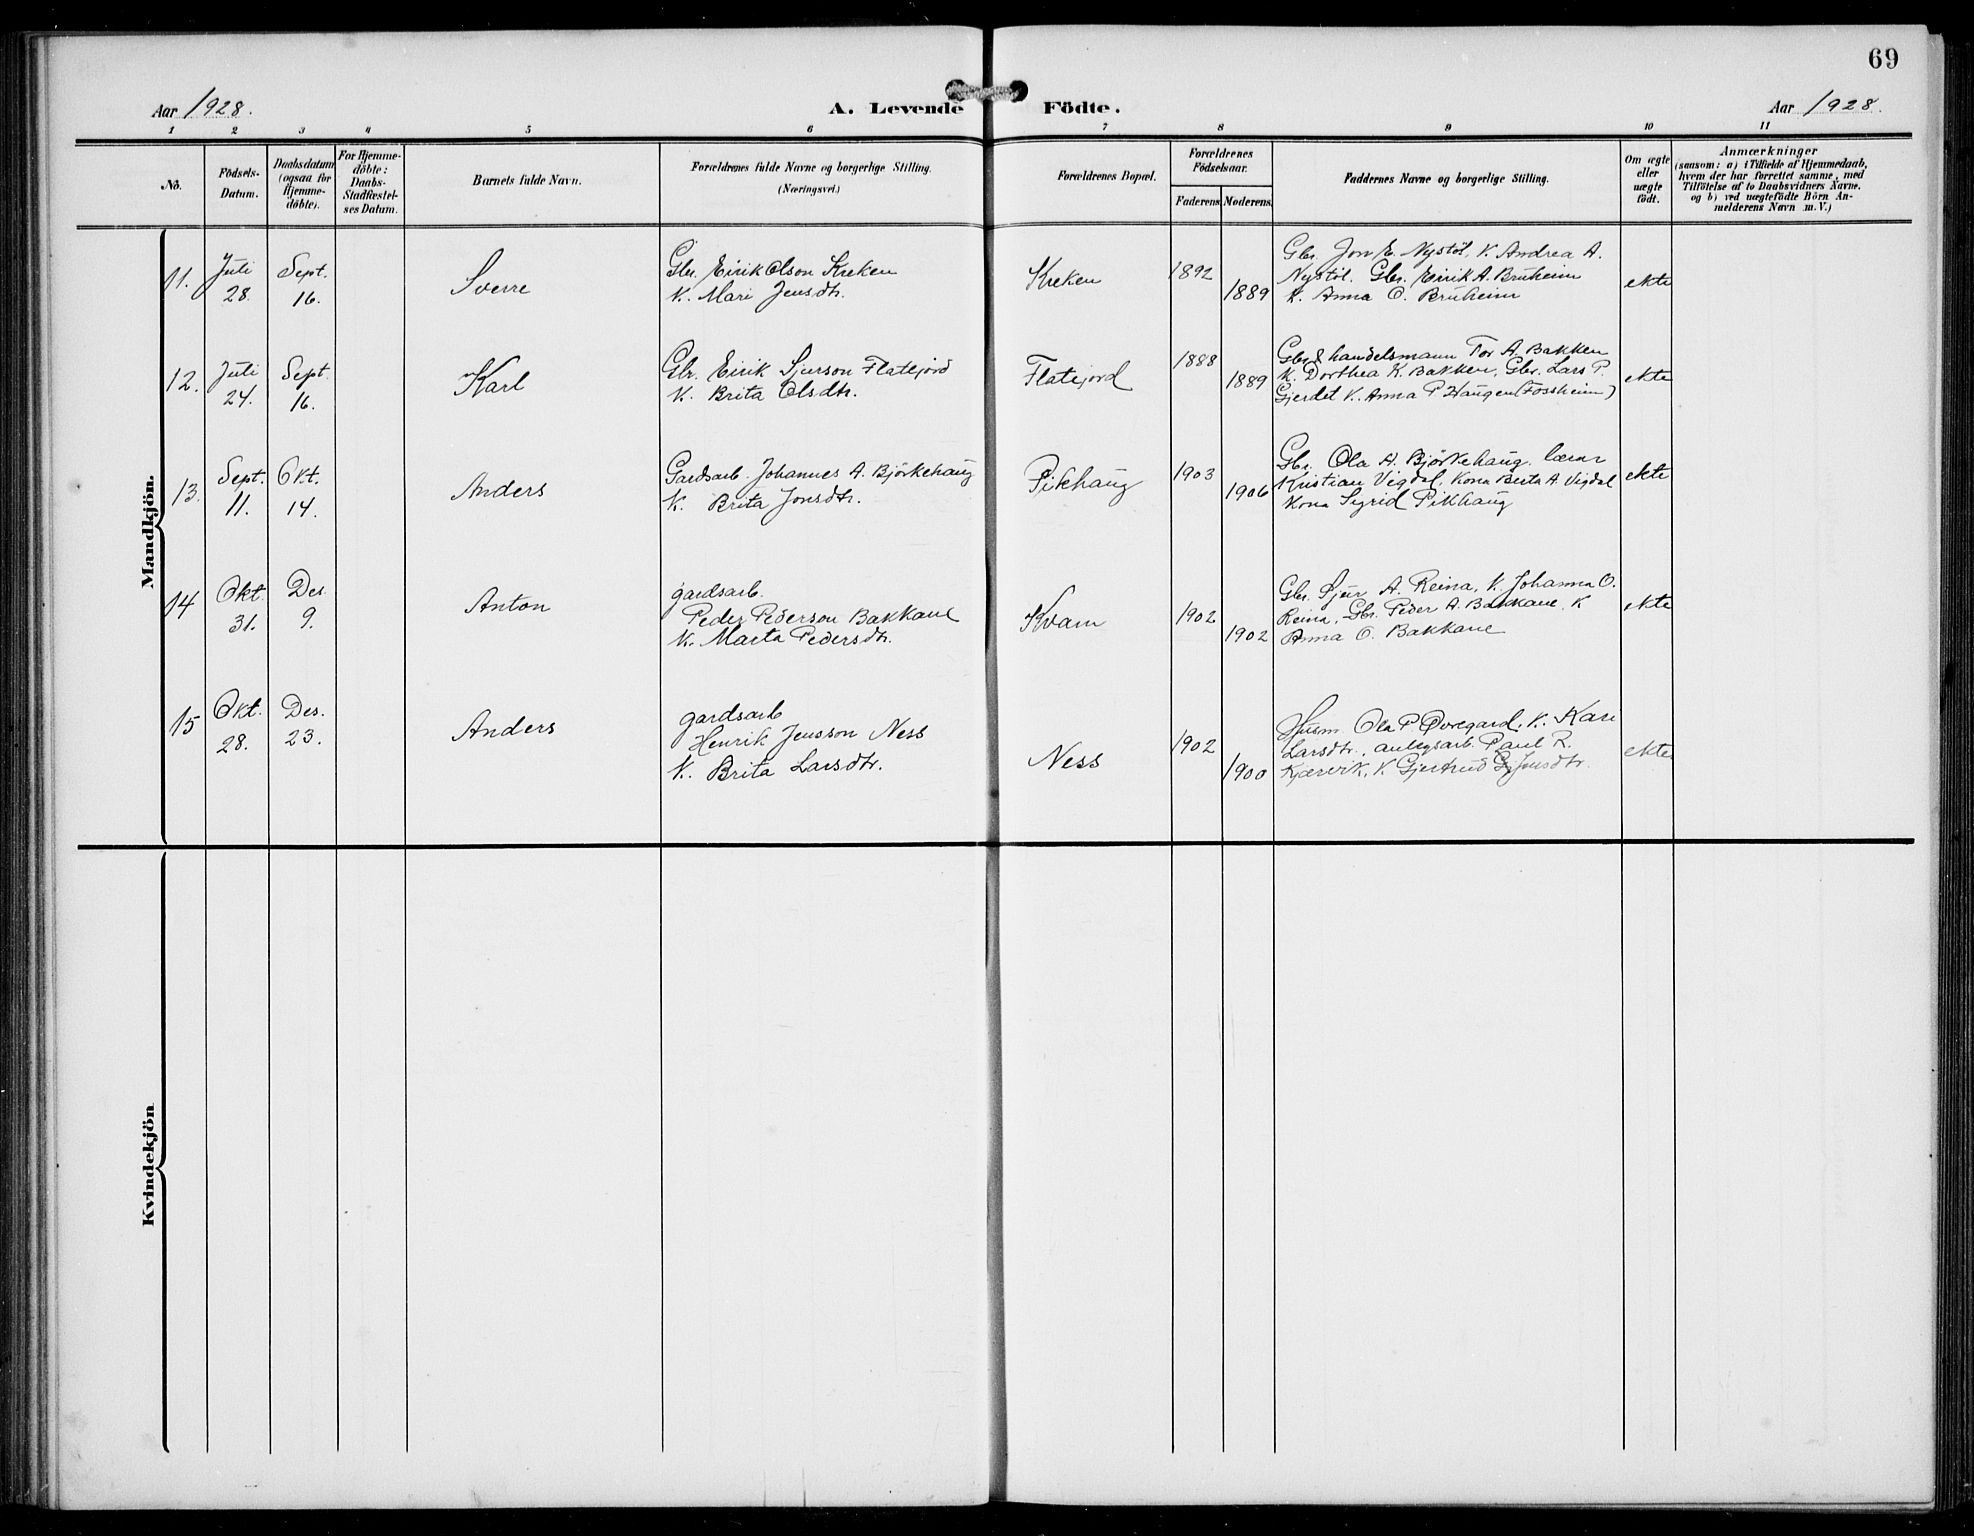 69
Aar 1928.
A. Levende Födte.
Aar 1928.
1 2 3 4 5 6 7 8 9 10 11
No.
Födsels-
Datum.
Daabsdatum
(ogsaa for
Hjemme-
döbte).
For Hjemme-
döbte:
Daabs-
Stadfæstel-
ses Datum.
Barnets fulde Navn.
Forældrenes fulde Navne og borgerlige Stilling.
(Næringsvei.)
Forældrenes Bopæl.
Forældrenes
Födselsaar.
Faderens Moderens
Faddernes Navne og borgerlige Stilling.
Om ægte
eller
uægte
födt.
Anmærkninger
(saasom: a) i Tilfælde af Hjemmedaab,
hvem der har forrettet samme, med
Tilföielse af to Daabsvidners Navne.
og b) ved uægtefödte Börn An-
melderens Navn m. V.)
Mandkjön.
11.
Juli
28.
Sept.
16.
Sverre
Gbr. Eirik Olson Kreken
K. Mari Jensdtr.
Kreken
1892
1889
Gbr. Jon E. Nystöl, K. Andrea A.
Nystöl. Gbr. Eirik A. Bruheim
K. Anna O. Bruheim
ekte
12.
Juli
24.
Sept.
16.
Karl
Gbr. Eirik Sjurson Flatejord
K. Brita Olsdtr.
Flatejord
1888
1889
Gbr & handelsmann Tor A. Bakken
K. Dorthea K. Bakken, Gbr. Lars P.
Gjerdet K. Anna P Haugen (Fossheim)
ekte
13.
Sept.
11.
Okt.
14.
Anders
Gardsarb. Johannes A. Björkehaug
K. Brita Jonsdtr.
Pikhaug
1903
1906
Gbr. Ola A. Bjørkehaug. lærar
Kristian Vigdal, Kona Berta A Vigdal
Kona Sigrid Pikhaug
ekte
14
Okt.
31.
Des.
9.
Anton
gardsarb.
Peder Pederson Bakkane
K. Marta Pedersdtr.
Kvam
1902
1902
Gbr. Sjur A. Reina, K. Johanna O.
Reina, Gbr. Peder A. Bakkane, K
Anna O. Bakkane
ekte
15
Okt.
28.
Des.
23.
Anders
gardsarb
Henrik Jensson Ness
K. Brita Larsdtr.
Ness
1902
1900
Husm. Ola P Øvregard, K. Kari
Larsdtr., anlegsarb. Paul R.
Kjærvik, K. Gjertrud Jensdtr.
ekte
Kvindekjön